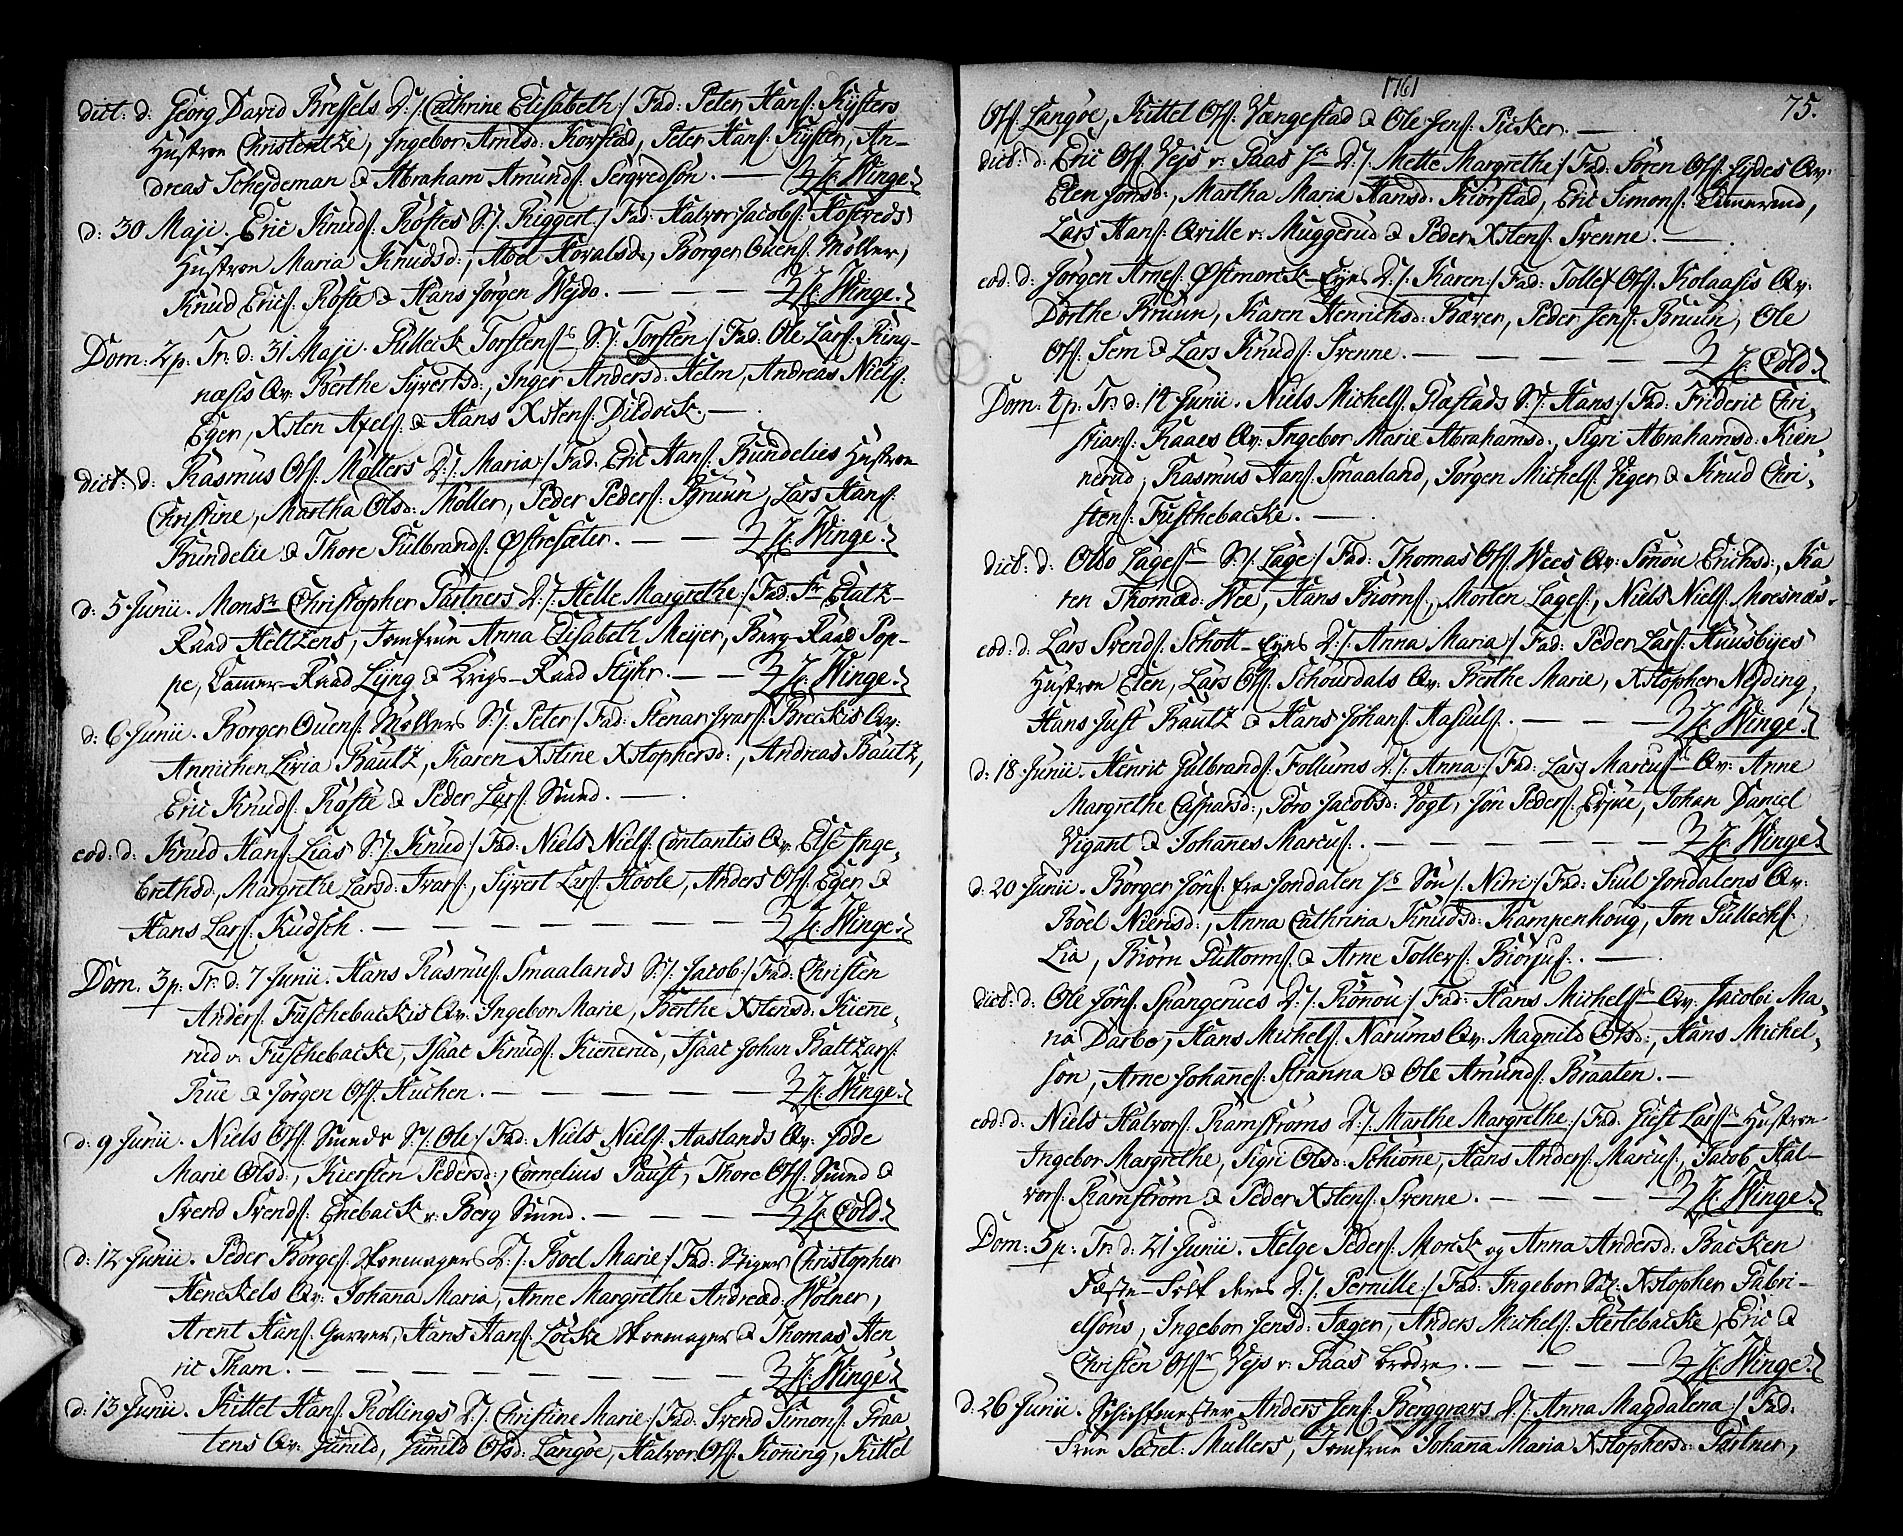 dict: d: Georg David Bressels D: /: Cathrine Elisabeth :/ Fad: Peter Hans: Kysters
Hustroe Christentze, Ingebor Arnesd: Korstad, Peter Hans: Kyster, An-
dreas Scheydeman & Abraham Amunds: Sergvedsøn. — H: Winge.
d: 30 Maji. Eric Knuds: Røstes S: /: Riggert :/ Fad: Halvor Jacobs: Hostveds
Hustroe Maria Knudsd:, Abel Hovalsd:, Børger Ouens: Møller,
Knud Erics: Røste & Hans Jørgen Weydo. — — — H: Winge.
Dom: 2 p. Tr: d: 31 Maji. Pulleck Torstens: S: /: Torsten :/ Fad: Ole Lars: Ring-
næsis Qv: Berthe Syvertsd:, Inger Andersd: Helm, Andreas Niels:
Eger, Xsten Axels: & Hans Xstens: Dildock. —
dict: d: Rasmus Ols: Møllers D: /: Maria :/ Fad: Eric Hans: Kundelies Hustroe
Christine, Martha Olsd: Møller, Peder Peders: Bruun, Lars Hans:
Bundelie & Thore Gulbrands: Østresæter. — — H: Winge.
d: 5 Junii. Monsr: Christopher Partners D: /: Helle Margrethe :/ Fad: Fr: Etatz-
Raad Heltzens, Jomfrue Anna Elisabeth Meyer, Berg-Raad Pop-
pe, Cammer-Raad Lyng & Krigs-Raad Stykr. — — H: Winge.
d: 6 Junii. Børger Ouens: Møllers S: /: Peter :/ Fad: Stenar Ivars: Breckis Qv:
Annichen Livia Bautz, Karen Xstine Xstophersd:, Andreas Bautz,
Eric Knuds: Røste & Peder Lars: Smed. —
eod: d: Knud Hans: Lias S: /: Knud :/ Fad: Niels Niels: Contantis Qv: Else Inge-
brethsd:, Margrethe Larsd: Ivars:, Syvert Lars: Hoole, Anders Ols: Eger &
Hans Lars: Kudsch. — — — — — — H: Winge.
Dom: 3 p: Tr: d: 7 Junii. Hans Rasmus: Smaalands S: /: Jacob :/ Fad: Christen
Anders: Fuschebackis Qv: Ingebor Marie, Berthe Xstensd: Kiene-
rud v: Fuschebacke, Isaac Knuds: Kienerud, Isaac Johan Baltzars:
Rue & Jørgen Ols: Huchen. — — — — — H: Winge.
d: 9 Junii. Niels Ols: Smeds S: /: Ole :/ Fad: Niels Niels: Aaslands Qv: Idde
Marie Olsd:, Kiersten Pedersd:, Cornelius Paust, Thore Ols: Smed &
Svend Svends: Eneback v: Berg Smed. — — — H: Cold.
d: 12 Junii. Peder Børges: Skomagers D: /: Boel Marie :/ Fad: Stiger Christopher
Henckels Qv: Johana Maria, Anne Margrethe Andreæd: Wölner,
Arent Hans: Garver, Hans Hans: Löcke Skomager & Thomas Hen
ric Tham. — — — — — — — H: Winge.
d: 13 Junii. Kittel Hans: Kollings D: /: Christine Marie :/ Fad: Svend Simons: Braa
tens Qv: Gunild, Gunild Olsd: Langøe, Halvor Ols: Koning, Kittel
1761
75.
Ols: Langøe, Kittel Ols: Vængestad & Ole Jens: Picker. —
dict: d: Eric Ols: Vejs v: Saas Hr: D: /: Mette Margrethe :/ Fad: Søren Ols: Hydes Qv:
Elen Jonsd:, Martha Maria Hansd: Kiorstad, Eric Simons: Camerend,
Lars Hans: Qville v: Muggerud & Peder Xstens: Svenne. —
eod: d: Jørgen Arnes: Østmorck-Eyes D: /: Karen :/ Fad: Tollef Ols: Kolaasis Qv:
Dorthe Bruun, Karen Henrichsd: Bæver, Peder Jens: Bruun, Ole
Ols: Sem & Lars Knuds: Svenne. — — — — — H: Cold.
Dom: 4 p: Tr: d: 14 Junii. Niels Michels: Ræstads S: /: Hans :/ Fad: Frideric Chri-
stians: Raaes Qv: Ingebor Marie Abrahamsd:, Sigri Abrahamsd: Kien-
nerud, Rasmus Hans: Smaaland, Jørgen Michels: Eiger & Knud Chri-
stens: Fuschebacke. —
dict: d: Oldo Lages: S: /: Lage :/ Fad: Thomas Ols: Wees Qv: Rönou Erichsd:, Ka
ren Thomæd: Wee, Hans Biørns:, Morten Lages:, Niels Niels: Moesnæs.
eod: d: Lars Svends: Schott-Eyes D: /: Anna Maria :/ Fad: Peder Lars: Huusbyes
Hustroe Elen, Lars Ols: Schourdals Qv: Berthe Marie, Xstopher Neyding,
Hans Just Bautz & Hans Johans: Hasiuls. — — — H: Winge.
d: 18 Junii. Henric Gulbrands: Follums D: /: Anna :/ Fad: Lars Marcus: Qv: Anne
Margrethe Caspersd:, Soro Jacobsd: Vogt, Jon Peders: Erne, Johan Daniel
Vigant & Johannes Marcus:. — — — — — H: Winge.
d: 20 Junii. Børger Jøns: fra Jondalen Hs: Søn /: Niri :/ Fad: Siul Jondalens Qv:
Boel Nirisd:, Anna Cathrina Knudsd: Kampenhoug, Jon Pullecks:
Lia, Biørn Guttorms: & Arne Tollefs: Biørjus:. —
dict: d: Ole Jøns: Spangerues D: /: Rönou :/ Fad: Hans Michels: Qv: Jacobi Ma-
na Darbo, Hans Michels: Narums Qv: Magnild Olsd:, Hans Michel-
søn, Arne Johannes: Stranna & Ole Amunds: Braaten. —
eod: d: Niels Halvors: Ramstrøms D: /: Marthe Margrethe :/ Fad: Giest Lars: Hustroe
Ingebor Margrethe, Sigri Olsd: Schionne, Hans Anders: Marcus:, Jacob Hal-
vors: Ramstrøm & Peder Xstens: Svenne. — — — H: Winge.
Dom: 5 p: Tr: d: 21 Junii. Helge Peders: Morck og Anna Andersd: Backen
Fæste-Folk deres D: /: Pernille :/ Fad: Ingebor Sal: Xstopher Fabri-
elsöns, Ingebor Jensd: Tager, Anders Michels: Hertebacke, Eric &
Christen Ols: Vejs v: Saas Brødre. — — — H: Winge.
d: 26 Junii. Schichtmester Anders Jens: Berggravs D: /: Anna Magdalena :/ Fad:
Frue Secret: Mullers, Jomfrue Johanna Maria Xstophersd: Partner,